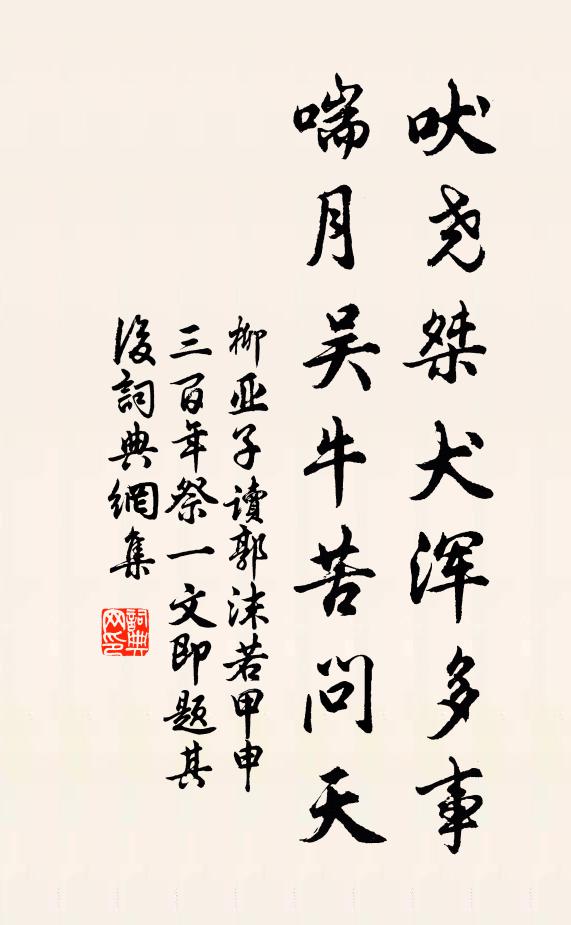 吠尧桀犬浑多事
喘月吴牛苦问天
柳亚子读郭沫若甲申
三百年祭一文即题其
后词典網集
詞典
网印